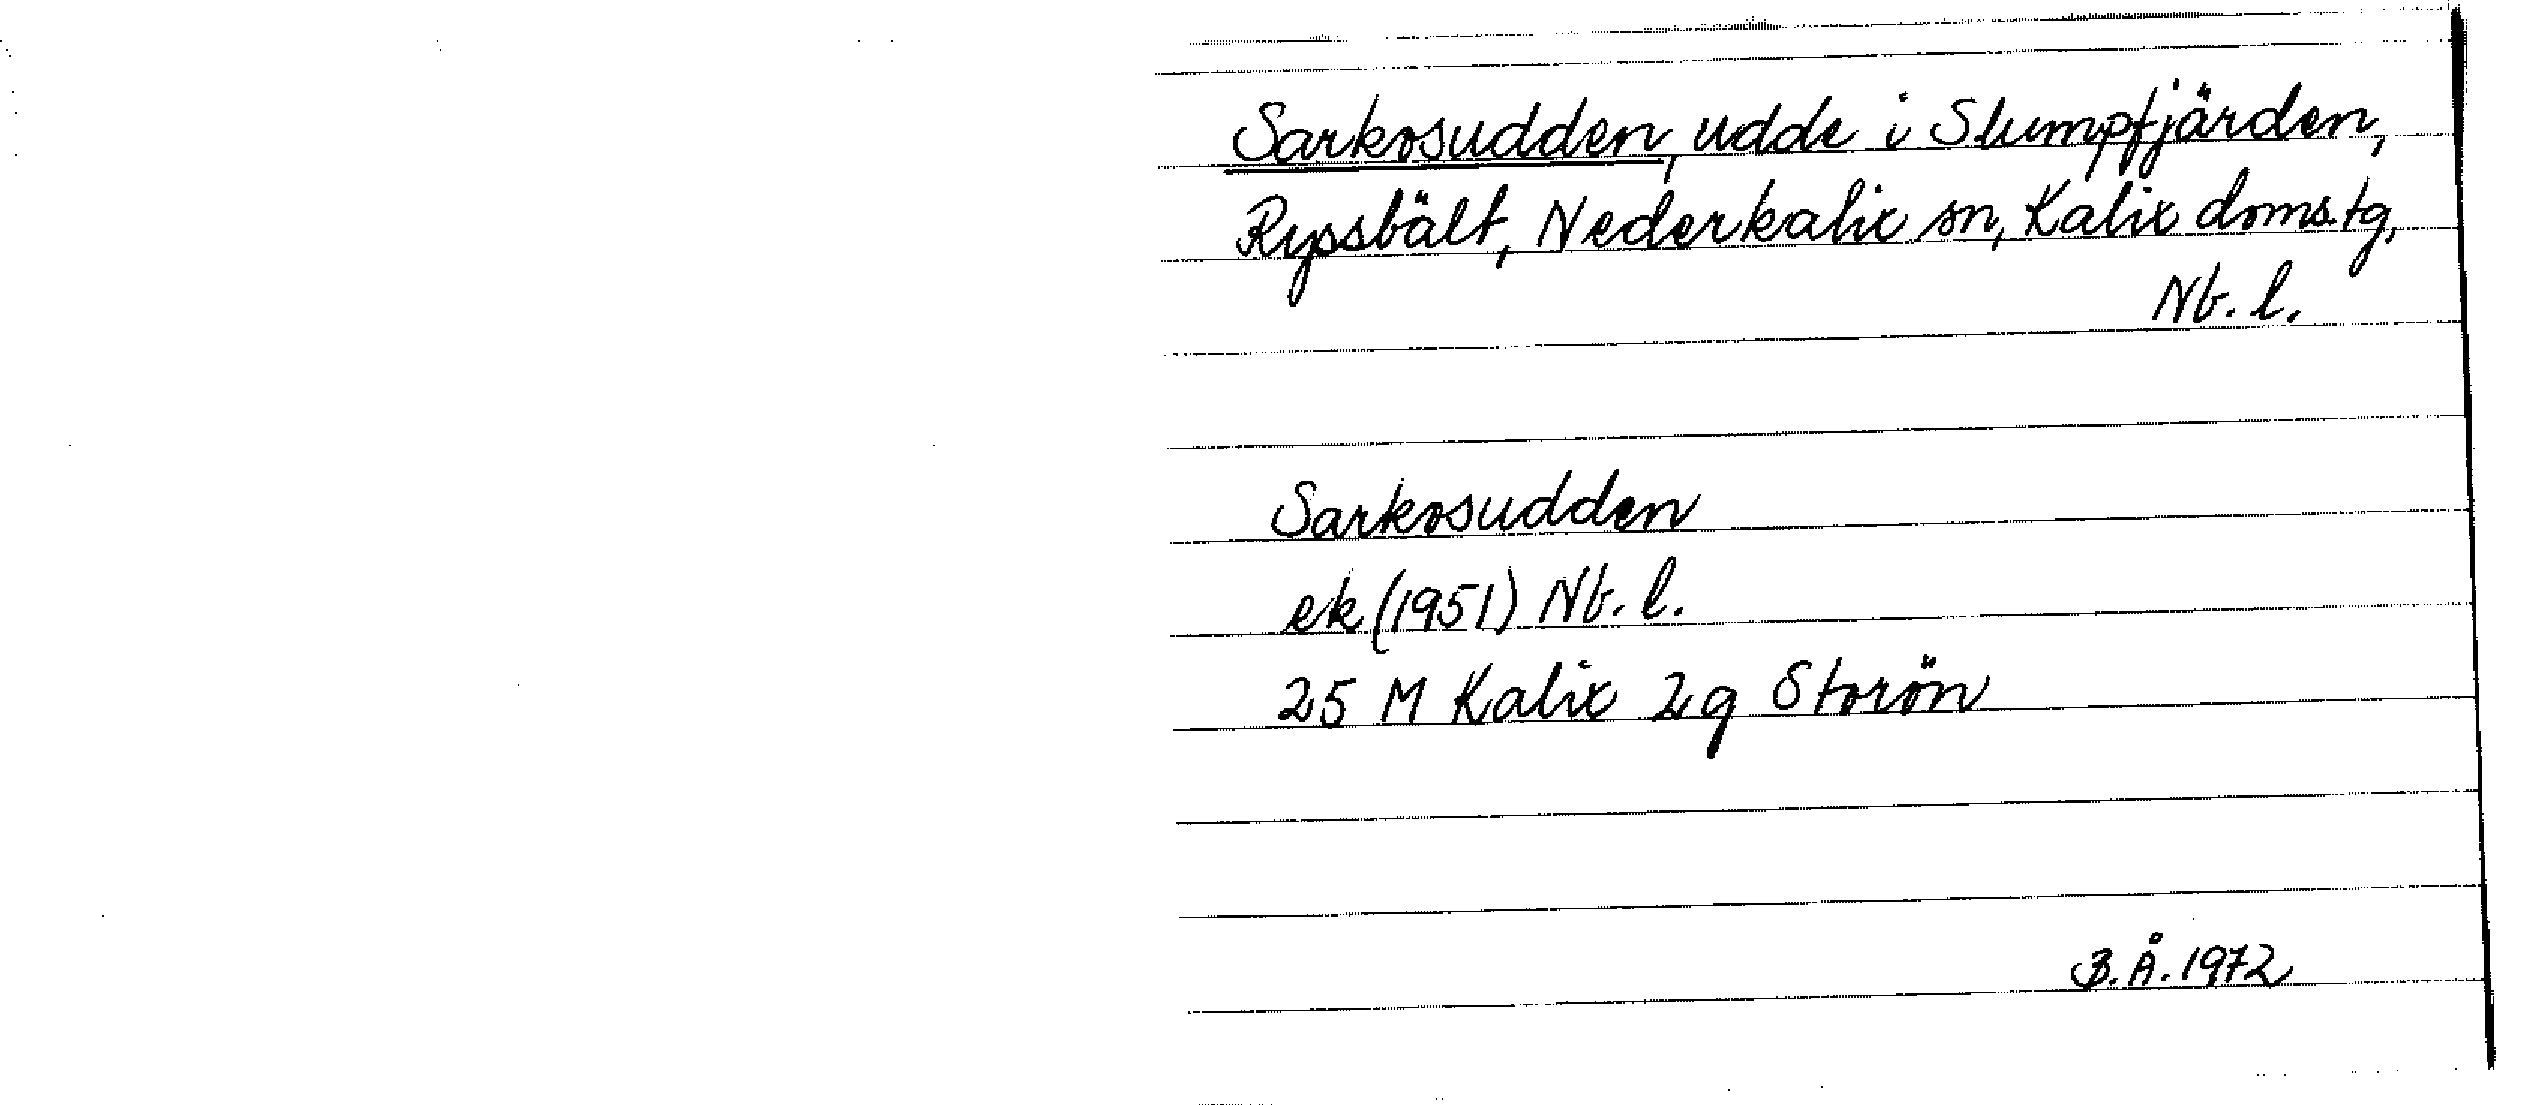 Sarkosudden, udde i Slumpfjärden,
Ryssbält, Nederkalix sn, Kalix doms.tg,
Nb. l.
Sarkosudden
ek (1951) Nb. l.
25 M Kalix 2g Storön
B.Å. 1972